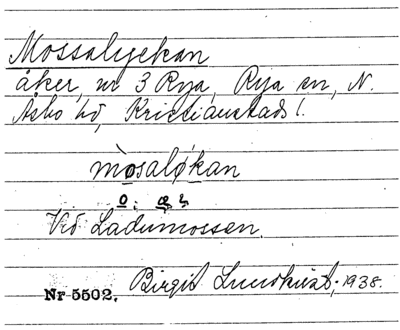 Mossalyckan
åker, nr 3 Rya, Rya sn, N.
Åsbo hd, Kristianstads l.
mòsaløkan
o:
Vid Ladumossen.
Nr 5502. Birgit Lundkvist, 1938.